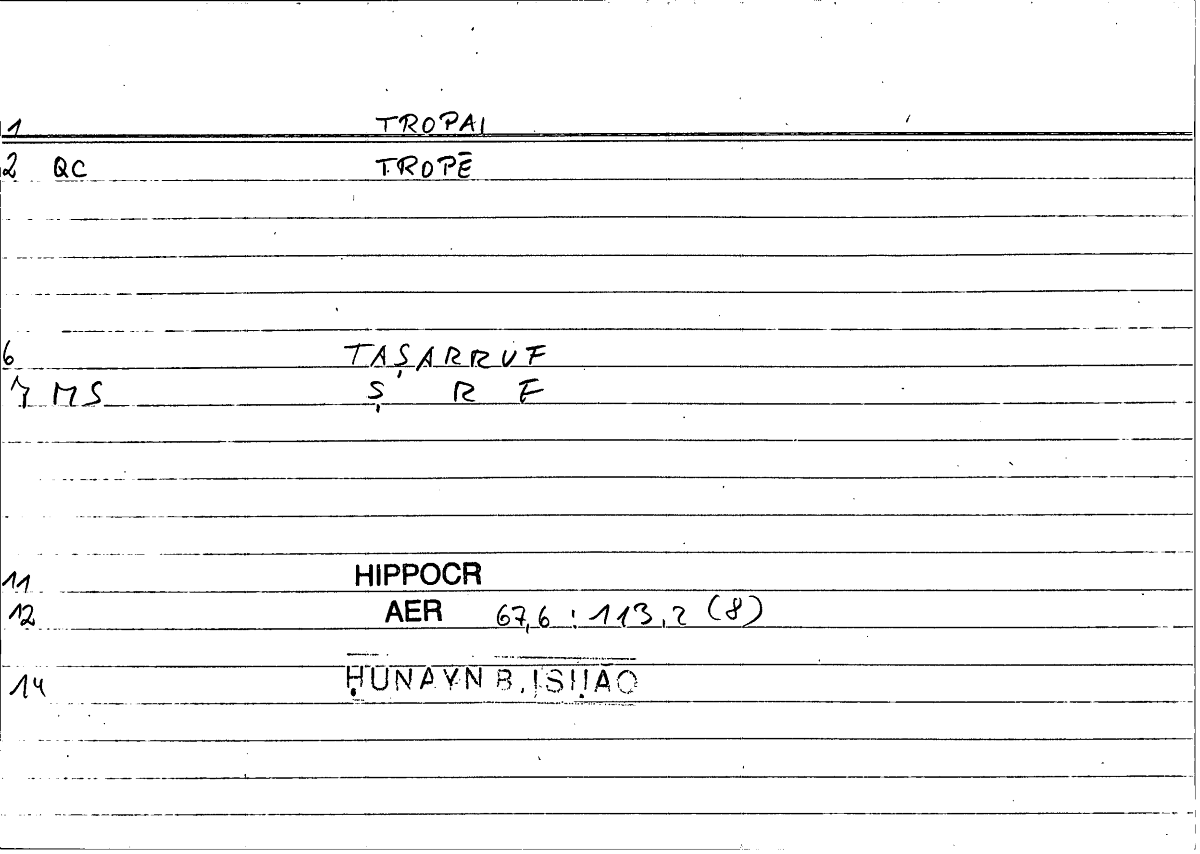 1 TROPAI
2 QC TROPĒ
6 TAṢARRUF
7 MS Ṣ R F
11 HIPPOCR
12 AER 67,6 : 113,2 (8)
14 ḤUNAYN B. ISḤĀQ